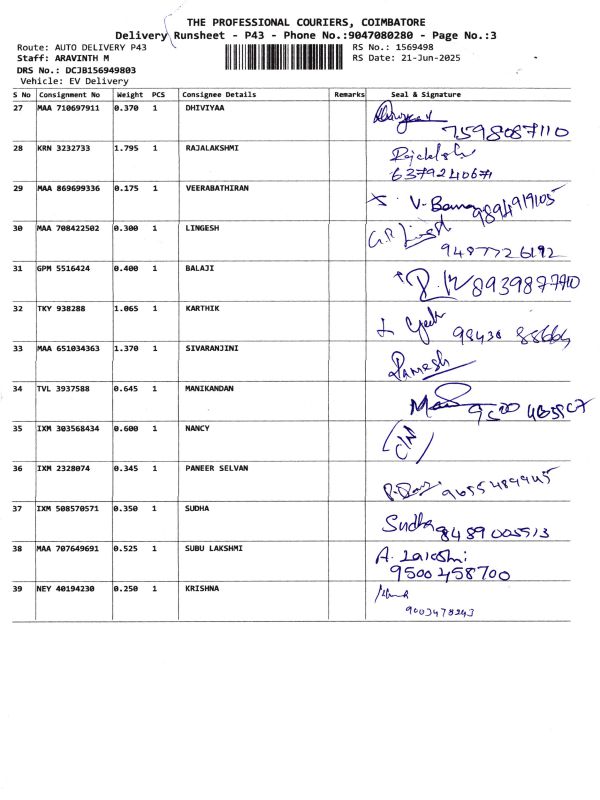 THE PROFESSIONAL COURIERS, COIMBATORE
Delivery Runsheet - P43 - Phone No.:9047080280 - Page No.:3
Route: AUTO DELIVERY P43 RS No.: 1569498
Staff: ARAVINTH M RS Date: 21-Jun-2025
DRS No.: DCJB156949803
Vehicle: EV Delivery
S No Consignment No Weight PCS Consignee Details Remarks Seal & Signature
27 MAA 710697911 0.370 1 DHIVIYAA
7598087110
28 KRN 3232733 1.795 1 RAJALAKSHMI Rajalakshmi
6379240671
29 MAA 869699336 0.175 1 VEERABATHIRAN 9894919105
30 MAA 708422502 0.300 1 LINGESH
9487726192
31 GPM 5516424 0.400 1 BALAJI
32 TKY 938288 1.065 1 KARTHIK 98430
33 MAA 651034363 1.370 1 SIVARANJINI Ramesh
34 TVL 3937588 0.645 1 MANIKANDAN
35 IXM 303568434 0.600 1 NANCY
36 IXM 2328074 0.345 1 PANEER SELVAN
37 IXM 508570571 0.350 1 SUDHA Sudha 8489005513
38 MAA 707649691 0.525 1 SUBU LAKSHMI A. Lakshmi
9500458700
39 NEY 40194230 0.250 1 KRISHNA
9003478243